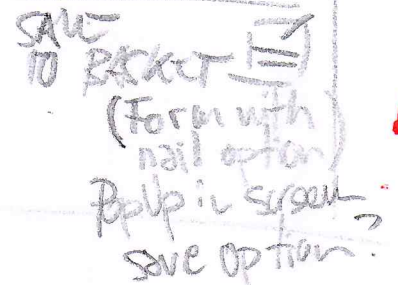 SAVE
TO BASKET
(Form with
mail option)
PopUp in screen
save option?